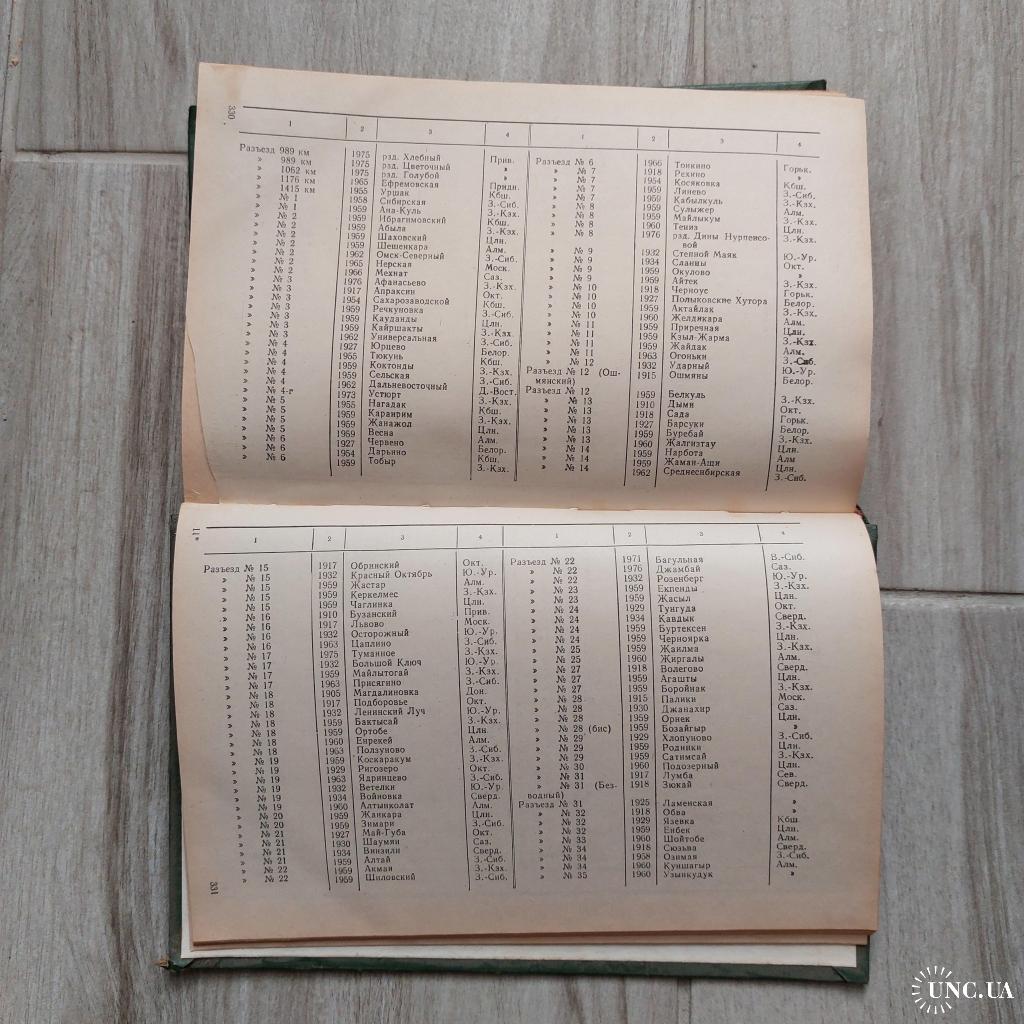 330
1 2 3 4
Разъезд 989 км 1975 рзд. Хлебный Прив.
» 989 км 1975 рзд. Цветочный »
» 1062 км 1975 рзд. Голубой »
» 1176 км 1965 Ефремовская Придн.
» 1415 км 1955 Уршак Кбш.
» № 1 1958 Сибирская З.-Сиб.
» № 1 1959 Ана-Куль З.-Кзх.
» № 2 1959 Ибрагимовский Кбш.
» № 2 1959 Абыла З.-Кзх.
» № 2 1959 Шаховский Цлн.
» № 2 1959 Шешенкара Алм.
» № 2 1962 Омск-Северный З.-Сиб.
» № 2 1965 Нерская Моск.
» № 2 1966 Мехнат Саз.
» № 3 1976 Афанасьево З.-Кзх.
» № 3 1917 Апраксин Окт.
» № 3 1954 Сахарозаводской Кбш.
» № 3 1959 Речкуновка З.-Сиб.
» № 3 1959 Кауданды Цлн.
» № 3 1959 Кайршакты З.-Кзх.
» № 3 1962 Универсальная З.-Сиб.
» № 4 1927 Юрцево Белор.
» № 4 1955 Тюкунь Кбш.
» № 4 1959 Коктонды З.-Кзх.
» № 4 1959 Сельская З.-Сиб.
» № 4 1962 Дальневосточный Д.-Вост.
» № 4-г 1973 Устюрт З.-Кзх.
» № 5 1955 Нагадак Кбш.
» № 5 1959 Караирим З.-Кзх.
» № 5 1959 Жанажол Цлн.
» № 5 1959 Весна Алм.
» № 6 1927 Червено Белор.
» № 6 1954 Дарьино Кбш.
» № 6 1959 Тобыр З.-Кзх.
1 2 3 4
Разъезд № 6 1966 Тонкино Горьк.
» № 7 1918 Рехино »
» № 7 1954 Косяковка Кбш.
» № 7 1959 Линево З.-Сиб.
» № 7 1959 Кабылкуль З.-Кзх.
» № 8 1959 Сулыжер Алм.
» № 8 1959 Майлыкум З.-Кзх.
» № 8 1960 Тениз Цлн.
» № 8 1976 рзд. Дины Нурпеисо- З.-Кзх.
вой
» № 9 1932 Степной Маяк Ю.-Ур.
» № 9 1934 Сланцы Окт.
» № 9 1959 Окулово »
» № 9 1959 Айтек З.-Кзх.
» № 10 1918 Черноус Горьк.
» № 10 1927 Полыковские Хутора Белор.
» № 10 1959 Актайлак З.-Кзх.
» № 10 1960 Желдикара Алм.
» № 11 1959 Приречная Цлн.
» № 11 1959 Кзыл-Жарма З.-Кзх.
» № 11 1959 Жайдак Алм.
» № 11 1963 Огоньки З.-Сиб.
» № 12 1932 Ударный Ю.-Ур.
Разъезд № 12 (Ош- 1915 Ошмяны Белор.
мянский)
Разъезд № 12 1959 Белкуль З.-Кзх.
» № 13 1910 Дыми Окт.
» № 13 1918 Сада Горьк.
» № 13 1927 Барсуки Белор.
» № 13 1959 Буребай З.-Кзх.
» № 13 1960 Жалгизтау Цлн.
» № 14 1959 Нарбота Алм
» № 14 1959 Жаман-Ащи Цлн.
» № 14 1962 Среднесибирская З.-Сиб.
11*
1 2 3 4
Разъезд № 15 1917 Обринский Окт.
» № 15 1932 Красный Октябрь Ю.-Ур.
» № 15 1959 Жастар Алм.
» № 15 1959 Керкелмес З.-Кзх.
» № 15 1959 Чаглинка Цлн.
» № 16 1910 Бузанский Прив.
» № 16 1917 Львово Моск.
» № 16 1932 Осторожный Ю.-Ур.
» № 16 1963 Цаплино З.-Сиб.
» № 17 1975 Туманное З.-Кзх.
» № 17 1932 Большой Ключ Ю.-Ур.
» № 17 1959 Майлытогай З.-Кзх.
» № 17 1963 Присягино З.-Сиб.
» № 18 1905 Магдалиновка Дон.
» № 18 1917 Подборовье Окт.
» № 18 1932 Ленинский Луч Ю.-Ур.
» № 18 1959 Бактысай З.-Кзх.
» № 18 1959 Ортобе Цлн.
» № 18 1960 Енрекей Алм.
» № 18 1963 Ползуново З.-Сиб.
» № 19 1959 Коскаракум З.-Кзх.
» № 19 1929 Ригозеро Окт.
» № 19 1963 Ядринцево З.-Сиб.
» № 19 1932 Ветелки Ю.-Ур.
» № 19 1934 Войновка Сверд.
» № 19 1960 Алтынколат Алм.
» № 20 1959 Жанкара Цлн.
» № 20 1959 Зимари З.-Сиб.
» № 21 1927 Май-Губа Окт.
» № 21 1930 Шаумян Саз.
» № 21 1934 Винзили Сверд.
» № 21 1959 Алтай З.-Сиб.
» № 22 1959 Акмаи З.-Кзх.
» № 22 1959 Шиловский З.-Сиб.
1 2 3 4
Разъезд № 22 1971 Багульная В.-Сиб.
» № 22 1976 Джамбай Саз.
» № 22 1932 Розенберг Ю.-Ур.
» № 23 1959 Екпенды З.-Кзх.
» № 23 1959 Жасыл Цлн.
» № 24 1929 Тунгуда Окт.
» № 24 1934 Кавдык Сверд.
» № 24 1959 Буртексен З.-Кзх.
» № 24 1959 Черноярка Цлн.
» № 25 1959 Жаилма З.-Кзх.
» № 25 1960 Жиргалы Алм.
» № 27 1918 Волегово Сверд.
» № 27 1959 Агашты Цлн.
» № 27 1959 Боройнак З.-Кзх.
» № 28 1915 Палики Моск.
» № 28 1930 Джанахир Саз.
» № 28 1959 Орнек Цлн.
» № 28 (бис) 1959 Бозайгыр »
» № 29 1929 Хлопуново З.-Сиб.
» № 29 1959 Родники Цлн.
» № 29 1959 Сатимсай З.-Кзх.
» № 30 1960 Подозерный Цлн.
» № 31 1917 Лумба Сев.
» № 31 (Без- 1918 Зюкай Сверд.
водный)
Разъезд № 31 1925 Ламенская »
» № 32 1918 Обва »
» № 32 1929 Язевка Кбш.
» № 32 1959 Енбек Цлн.
» № 33 1960 Шойтобе Алм.
» № 34 1918 Сюзьва Сверд.
» № 34 1958 Озимая З.-Сиб.
» № 34 1960 Куншагыр Алм.
» № 35 1960 Узынкудук »
331
UNC.UA